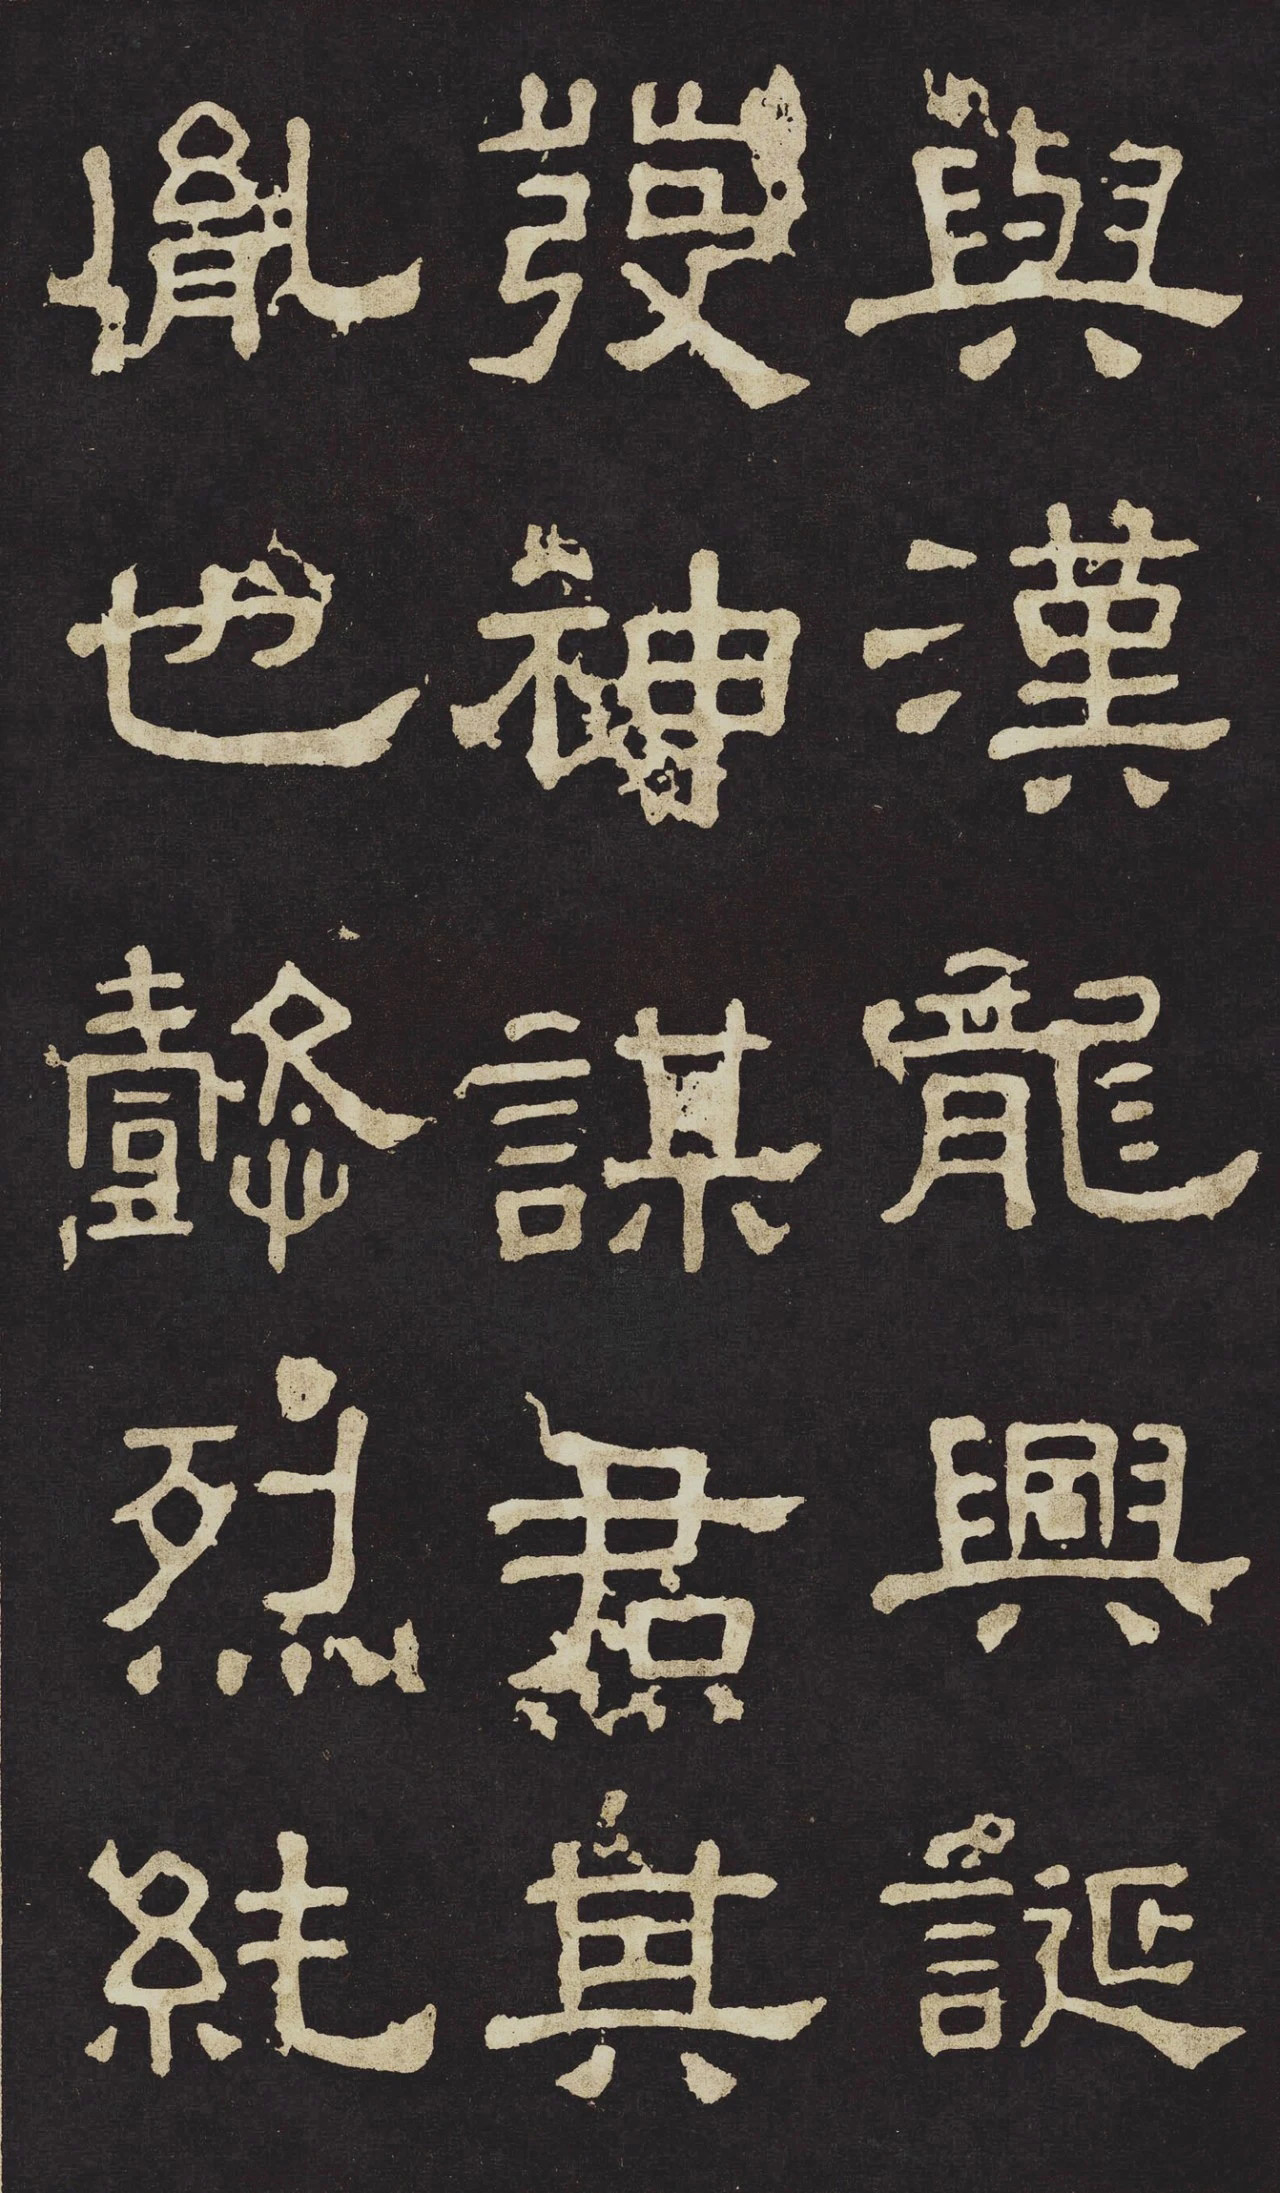 與漢龍興誕
發神謀君其
胤也懿烈純